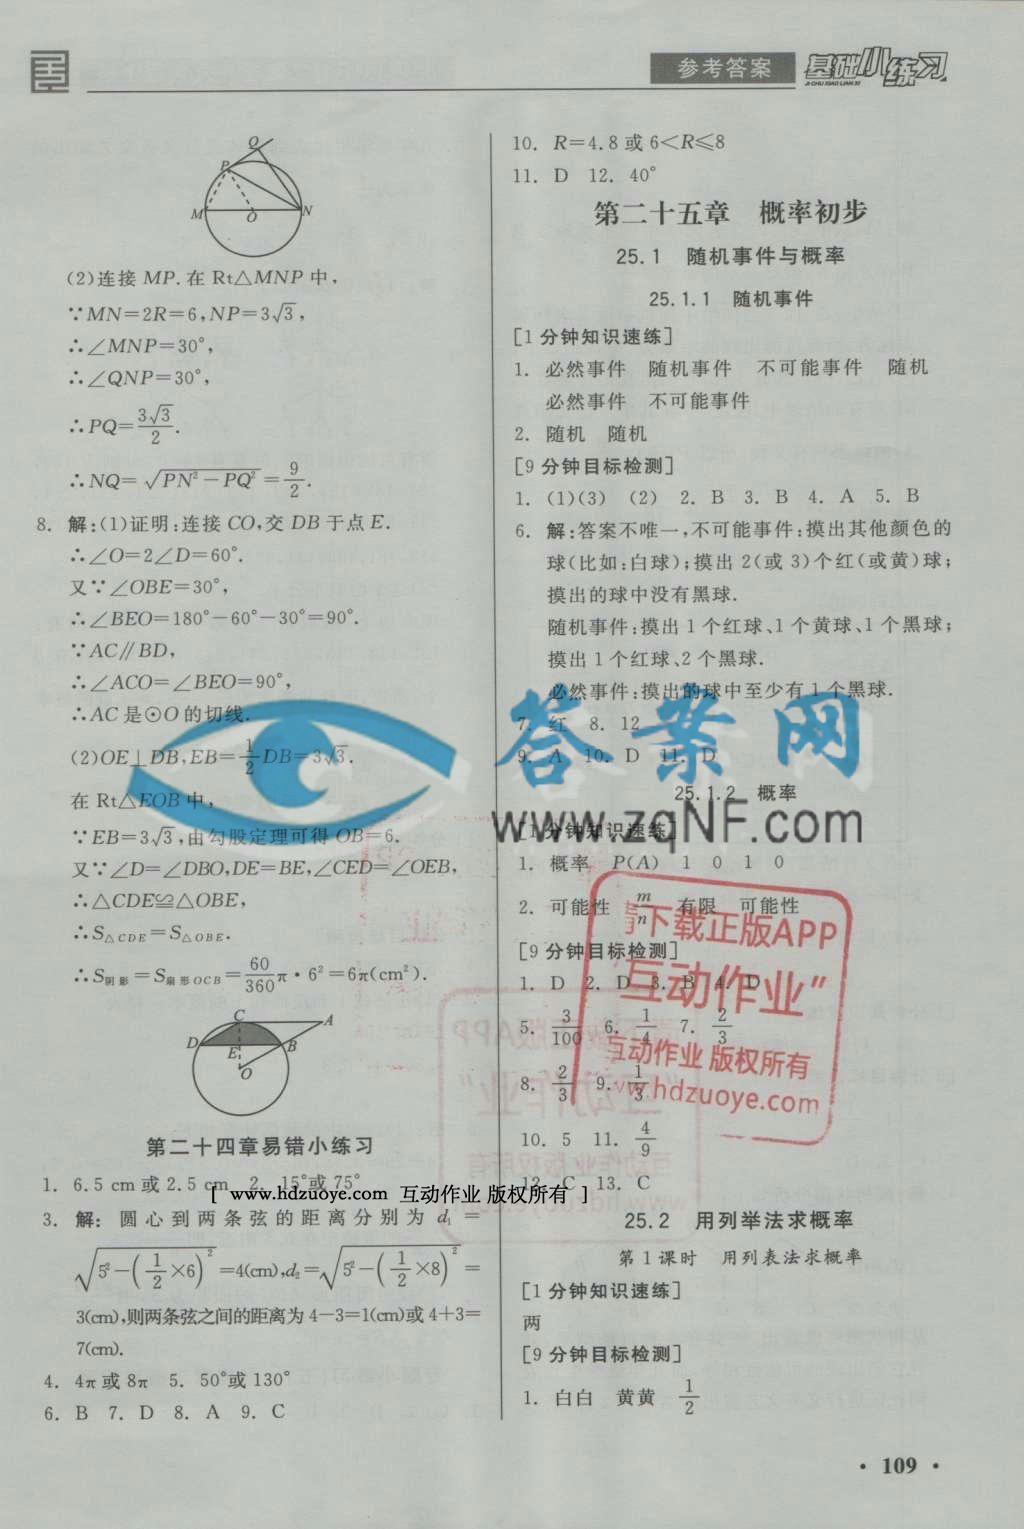 参考答案 基础小练习
JI CHU XIAO LIAN XI
Q
P
M O N
(2)连接 MP.在 Rt△MNP 中,
∵MN=2R=6,NP=3√3,
∴∠MNP=30°,
∴∠QNP=30°,
∴PQ=3√3/2.
∴NQ=√(PN²-PQ²)=9/2.
8. 解:(1)证明:连接 CO,交 DB 于点 E.
∴∠O=2∠D=60°.
又∵∠OBE=30°,
∴∠BEO=180°-60°-30°=90°.
∵AC∥BD,
∴∠ACO=∠BEO=90°,
∴AC 是⊙O 的切线.
(2)OE⊥DB,EB=1/2DB=3√3.
在 Rt△EOB 中,
∵EB=3√3,由勾股定理可得 OB=6.
又∵∠D=∠DBO,DE=BE,∠CED=∠OEB,
∴△CDE≌△OBE,
∴S△CDE=S△OBE.
∴S阴影=S扇形OCB=60/360π·6²=6π(cm²).
C A
D E B
O
第二十四章易错小练习
1. 6.5 cm 或 2.5 cm 2. 15°或 75°
3. 解:圆心到两条弦的距离分别为 d₁=
√(5²-(1/2×6)²)=4(cm),d₂=√(5²-(1/2×8)²)=
3(cm),则两条弦之间的距离为 4-3=1(cm)或 4+3=
7(cm).
4. 4π 或 8π 5. 50°或 130°
6. B 7. D 8. A 9. C
10. R=4.8 或 6<R≤8
11. D 12. 40°
第二十五章 概率初步
25.1 随机事件与概率
25.1.1 随机事件
[1 分钟知识速练]
1. 必然事件 随机事件 不可能事件 随机
必然事件 不可能事件
2. 随机 随机
[9 分钟目标检测]
1. (1)(3) (2) 2. B 3. B 4. A 5. B
6. 解:答案不唯一,不可能事件:摸出其他颜色的
球(比如:白球);摸出 2(或 3)个红(或黄)球;
摸出的球中没有黑球.
随机事件:摸出 1 个红球、1 个黄球、1 个黑球;
摸出 1 个红球、2 个黑球.
必然事件:摸出的球中至少有 1 个黑球.
7. 红 8. 12
9. A 10. D 11. D
25.1.2 概率
[1 分钟知识速练]
1. 概率 P(A) 1 0 1 0
2. 可能性 m/n 有限 可能性
[9 分钟目标检测]
1. D 2. D 3. B 4. D
5. 3/100 6. 1/4 7. 2/3
8. 2/3 9. 1/3
10. 5 11. 4/9
12. C 13. C
25.2 用列举法求概率
第 1 课时 用列表法求概率
[1 分钟知识速练]
两
[9 分钟目标检测]
1. 白白 黄黄 1/2
· 109 ·
答案网
www.zqNF.com
请下载正版APP
"互动作业"
互动作业 版权所有
www.hdzuoye.com
[ www.hdzuoye.com 互动作业 版权所有 ]